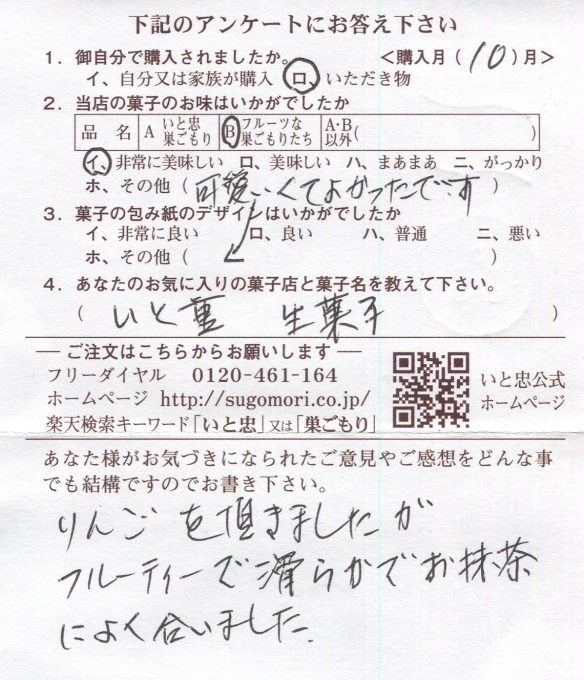 下記のアンケートにお答え下さい
1．御自分で購入されましたか。 ＜購入月（10）月＞
イ、自分又は家族が購入 ロ、いただき物
2．当店の菓子のお味はいかがでしたか
品 名 A いと忠 巣ごもり B フルーツな 巣ごもりたち A・B 以外（ ）
イ、非常に美味しい ロ、美味しい ハ、まあまあ ニ、がっかり
ホ、その他（可愛いくてよかったです）
3．菓子の包み紙のデザインはいかがでしたか
イ、非常に良い ロ、良い ハ、普通 ニ、悪い
ホ、その他（ ）
4．あなたのお気に入りの菓子店と菓子名を教えて下さい。
（ いと重 生菓子 ）
― ご注文はこちらからお願いします ―
フリーダイヤル 0120-461-164
ホームページ http://sugomori.co.jp/
楽天検索キーワード「いと忠」又は「巣ごもり」
いと忠公式
ホームページ
あなた様がお気づきになられたご意見やご感想をどんな事
でも結構ですのでお書き下さい。
りんごを頂きましたが
フルーティーで滑らかでお抹茶
によく合いました.